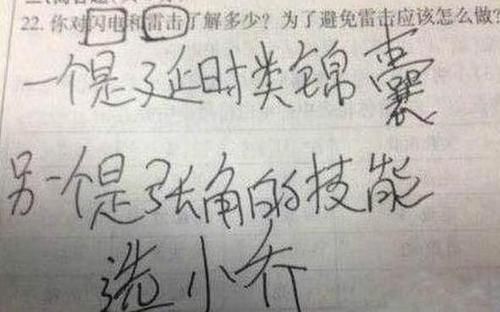 22. 你对闪电和雷击了解多少?为了避免雷击应该怎么做?
一个是延时类锦囊
另一个是张角的技能
选小乔